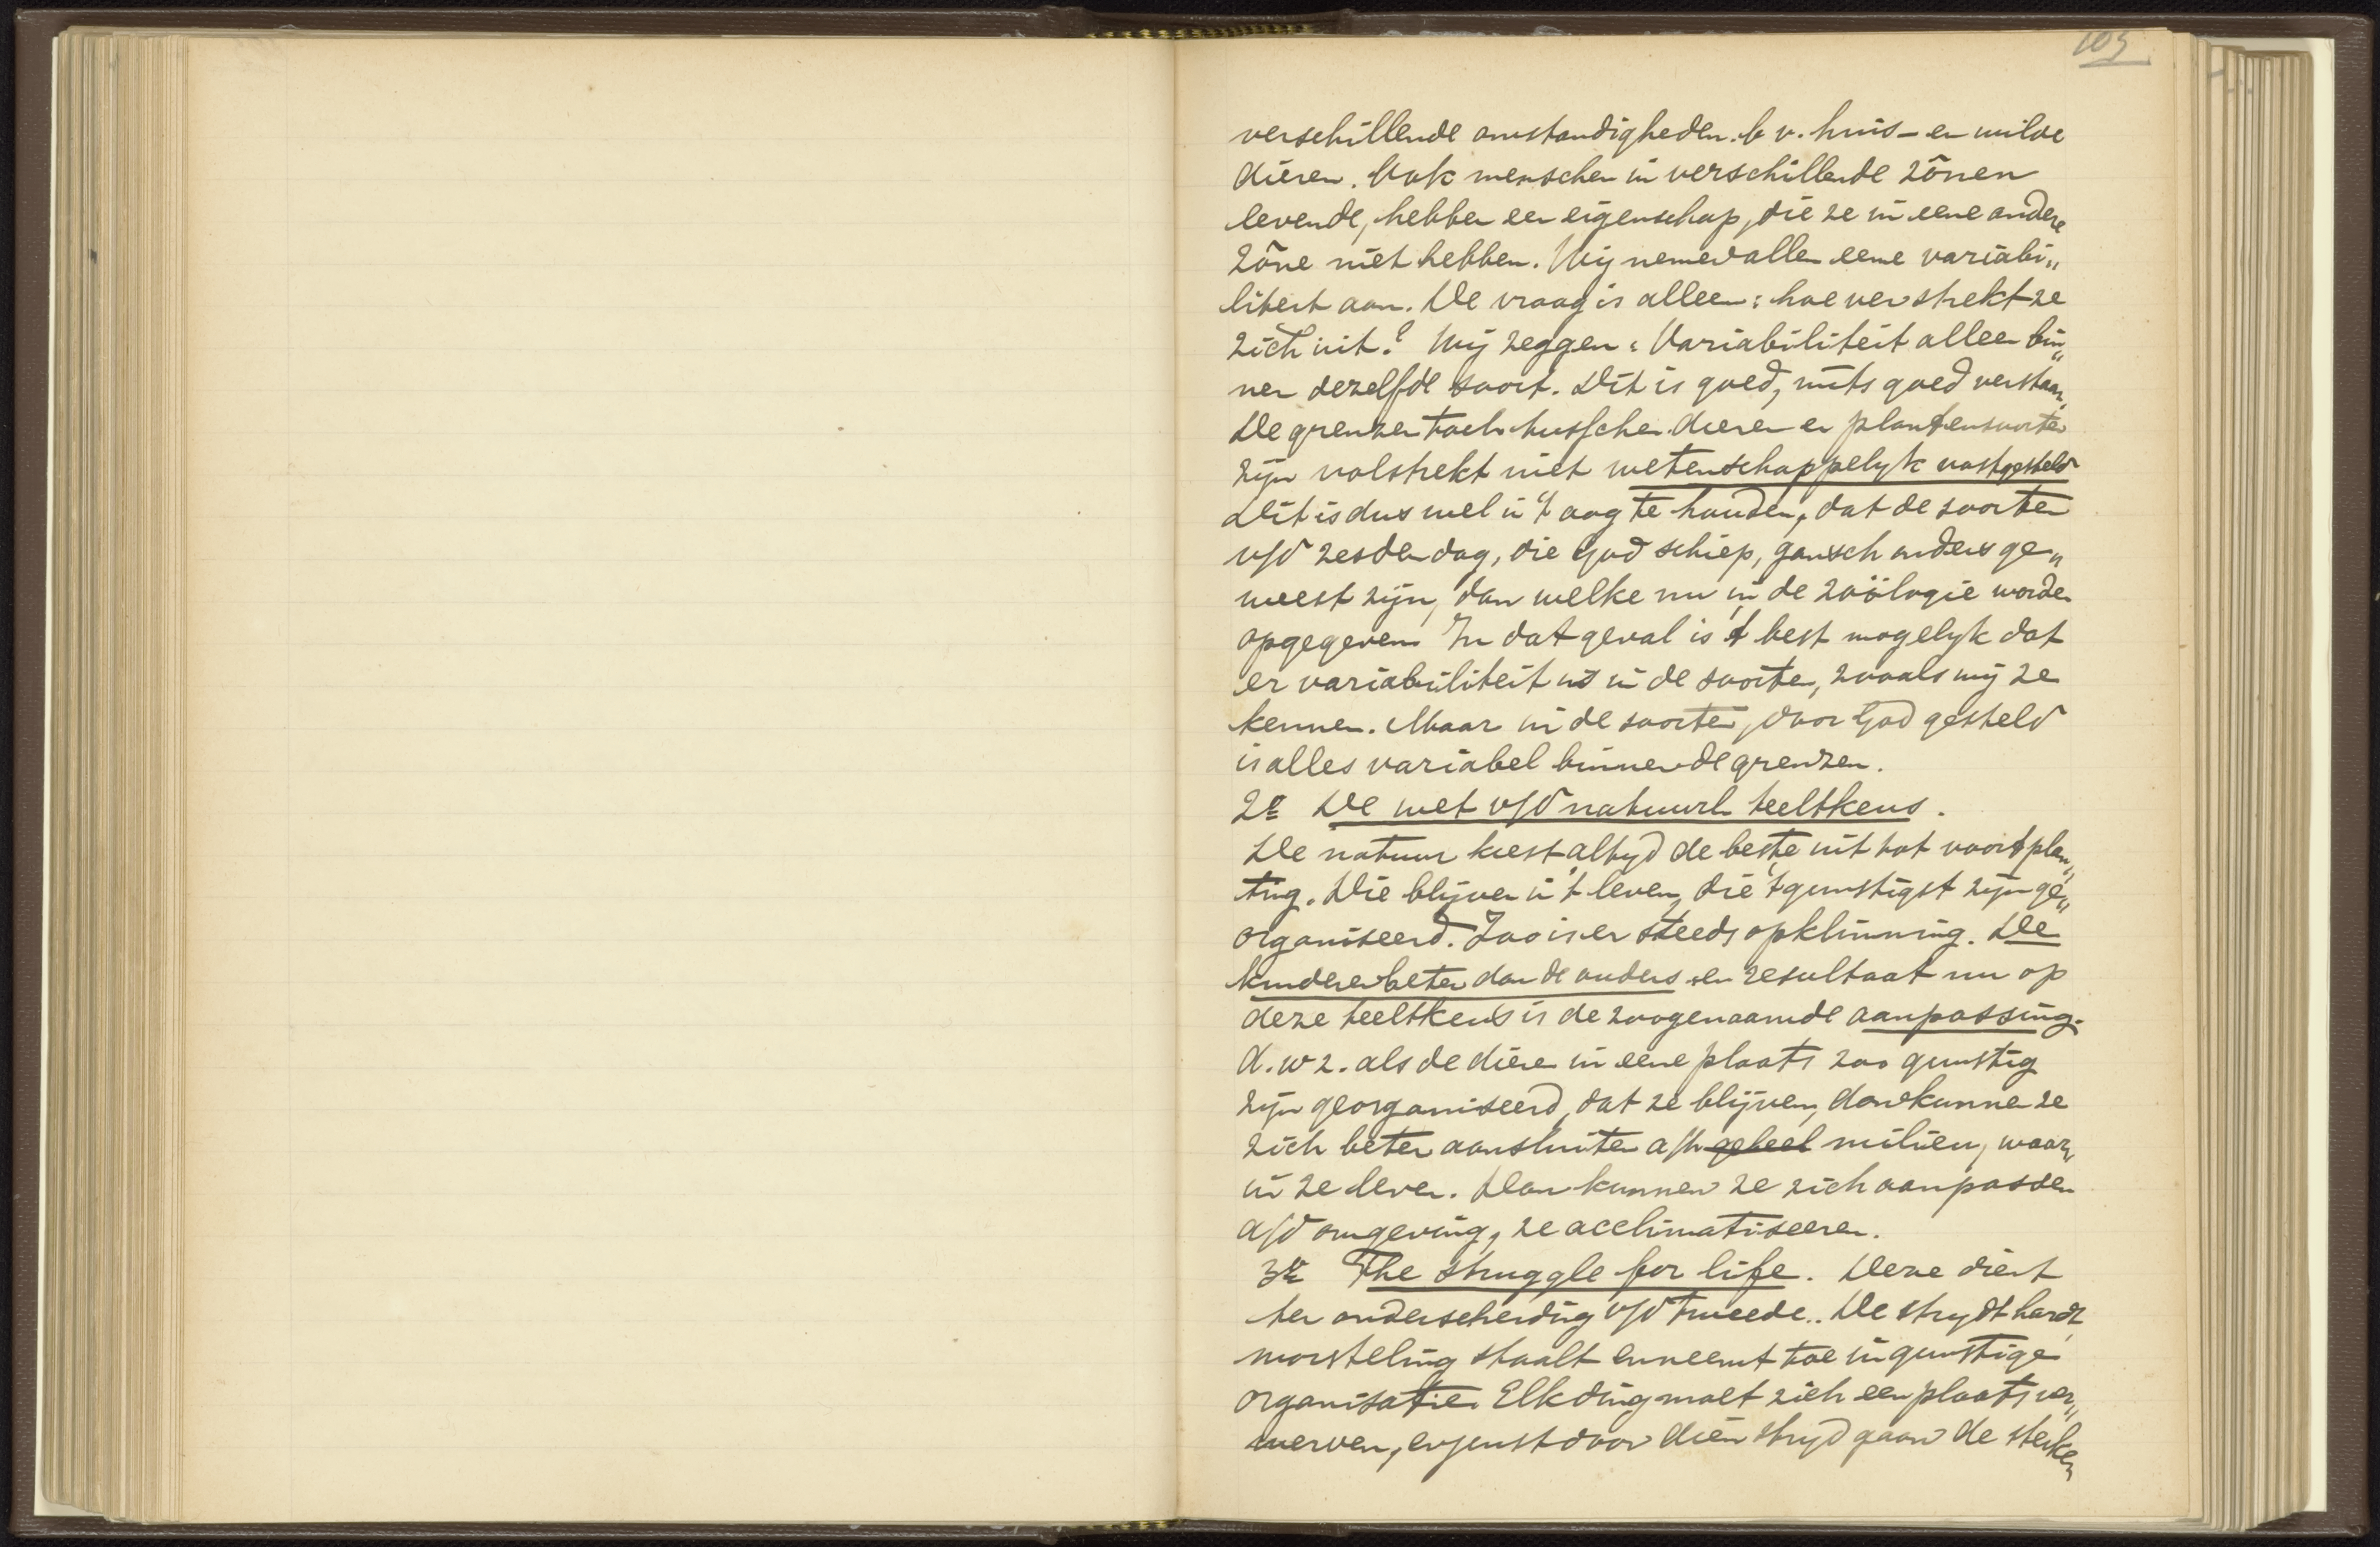 105
verschillende omstandigheden. b v. huis- en wilde
dieren. Ook menschen in verschillende zônen
levende, hebben een eigenschap, die ze in eene andere
zône niet hebben. Wij nemen allen eene variabi„
liteit aan. De vraag is alleen: hoe ver strekt ze
zich uit? Wij zeggen: Variabiliteit alleen bin„
nen dezelfde soort. Dit is goed, mits goed verstaan,
De grenzen toch tusschen dieren en plantensoorten
zijn volstrekt niet wetenschappelyk vastgesteld
Dit is dus wel in 't oog te houden, dat de soorten
v/d zesden dag, die God schiep, gansch anders ge„
weest zijn, dan welke nu in de zoölogie worden
opgegeven. In dat geval is 't best mogelyk dat
er variabiliteit is in de soorten, zooals wij ze
kennen. Maar in de soorten, door God gesteld
is alles variabel binnen de grenzen.
2e De wet v/d natuurl. teeltkeus.
De natuur kiest altyd de beste uit tot voortplan„
ting. Die blijven in 't leven, die 't gunstigst zijn ge„
organiseerd. Zoo is er steeds opklimming. De
kinderen beter dan de ouders en resultaat nu op
deze teeltkeus is de zoogenaamde aanpassing.
d. w z. als de dieren in eene plaats zoo gunstig
zijn georganiseerd, dat ze blijven, dan kunnen ze
zich beter aansluiten a/h geheel milieu, waar„
in ze leven. Dan kunnen ze zich aanpassen
a/d omgeving, ze acclimatiseeren.
3e The struggle for life. Deze dient
ter onderscheiding v/d tweede.. De stryd hardt,
worsteling staalt en neemt toe in gunstige
organisatie. Elk ding moet zich een plaats ver„
werven, en juist door dien stryd gaan de sterken